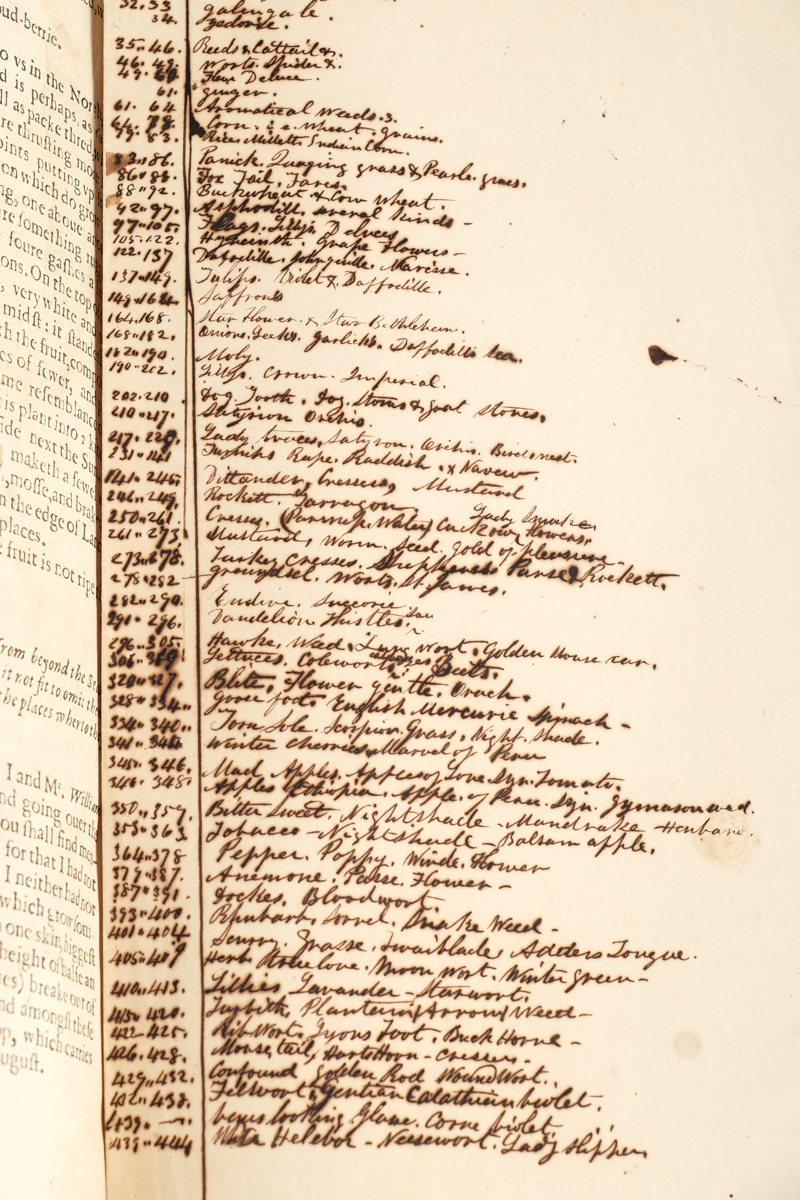 oud-berrie.
o vs in the Nor
d is perhaps, as
ll as packe thred
re thrusting mo
oints putting vp
on which do gro
ng, one aboue a
re something
foure gashes a
ons. On the top
very white and
midst: it stand
th the fruit, comp
es of fewer, and
me resemblanc
is plant into
ide next the Su
maketh a fewe
mosse, and brak
n the edge of Lan
places.
fruit is not ripe
rom beyond the
it not fit to omit th
he places wherto th
I and Mr. Willia
nd going ouer th
ou shall find me
for that I had not
I neither had nor
which grow som
one skin, biggest
height of halfe an
es) breake out of
nd amongst these
p, which carries
ugust.
32.33 galingale.
34. Zedoarie.
35..46. Reeds & Cattail &.
46.49. Worts. Spider &.
49. Flour Deluce.
61. ginger.
61. 64 Aromatical Weeds. 3.
Corn. i.e. wheat. grains.
83. Rice. Milletts Indian Corn.
83.86. Panick. Quaging grass & Pearle. grass.
86..88. Fox Tail. Tares.
88..92. Buckwheat & Cow wheat.
92..97. Asphodill. several kinds –
97..105. Flags. Lillys. Deluces
105..122. Hyacinth. Grape Flowers –
122..137 Daffodille. Johnquille. Narisse.
137..149. Tulips. Violet & Daffodille.
149..164. Saffrons
164..168. Star Flower. & Star Bethlehem.
168..182. Onions. Leeks. garlicks. Daffodills Sea.
182..190. Moly.
190..202. Lillys. Crown. Imperial.
202..210 Dog. Tooth. Dog. Stones & goat stones.
210..217. Satyrion Orchis.
217. 229. Lady traces, Satyron. Orchis. Birds nest.
231.. Turnips Rape. Raddish. & Navew.
241. 245. Dittander, Cresses, Mustard
246..249. Rockett. Tarragon.
250..261. Cresses. (Water) Cuckow flowers. Lady Smocks.
261.. 273. Mustard, Worm. Seed. Gold of pleasure –
273..278. Turkey Cresses. Shepherds Purse & Rockett.
278..282 – groundsel. Worts. St. James.
282..290. Endive. Succorie
291.. 296. Dandelion Thistles. Sow
296..305. Hawke. Weed. Lung wort. Golden Mouse ear.
306.. 319 Lettuces. Coleworts Beets.
320..327. Blite. Flower gentle. Orach.
328..334.. goose foot. English Mercurie Spinach –
334..340.. Torn Sole. Scorpion Grass. Night. Shade.
341.. 344 Winter Cherries. Marvel of Peru
345.. 346. Mad Apples. Apples of Love. Syn. Tomato.
346. 348. Apples Ethiopia. Apple. of Peru. Syn. Jymason weed.
350.. 357. Bitter Sweet. Nightshade – Mandrake – Henbane.
353..363 Tobacco – Nightshade – Balsam apple.
364..378 Pepper. Poppy. Winde. Flower
379..387. Anemone. Passe. Flower –
387..391. Dockes. Bloodwort
393..400. Rhubarb. Sorrel. Snake Weed –
401..404 Scurvy. Grasse. Twaiblade, Adders Tongue.
405..409 Herb truelove. Moon Wort. Winter green –
410..413. Lillies Lavander – Starwort.
415.. 420. Turbith. Plantain Arrow Weed –
422..425. Rib Wort. Lyons Foot. Buck Horne –
426. 428. Mouse tail, Harts Horn – Cresses.
429..432. Confound golden Rod WoundWort.
432..438. Felwort, Gentian Calathian violet.
439.. Venus looking Glass. Corne violet
439..444 White Helebor – Neesewort. Lady slipper.